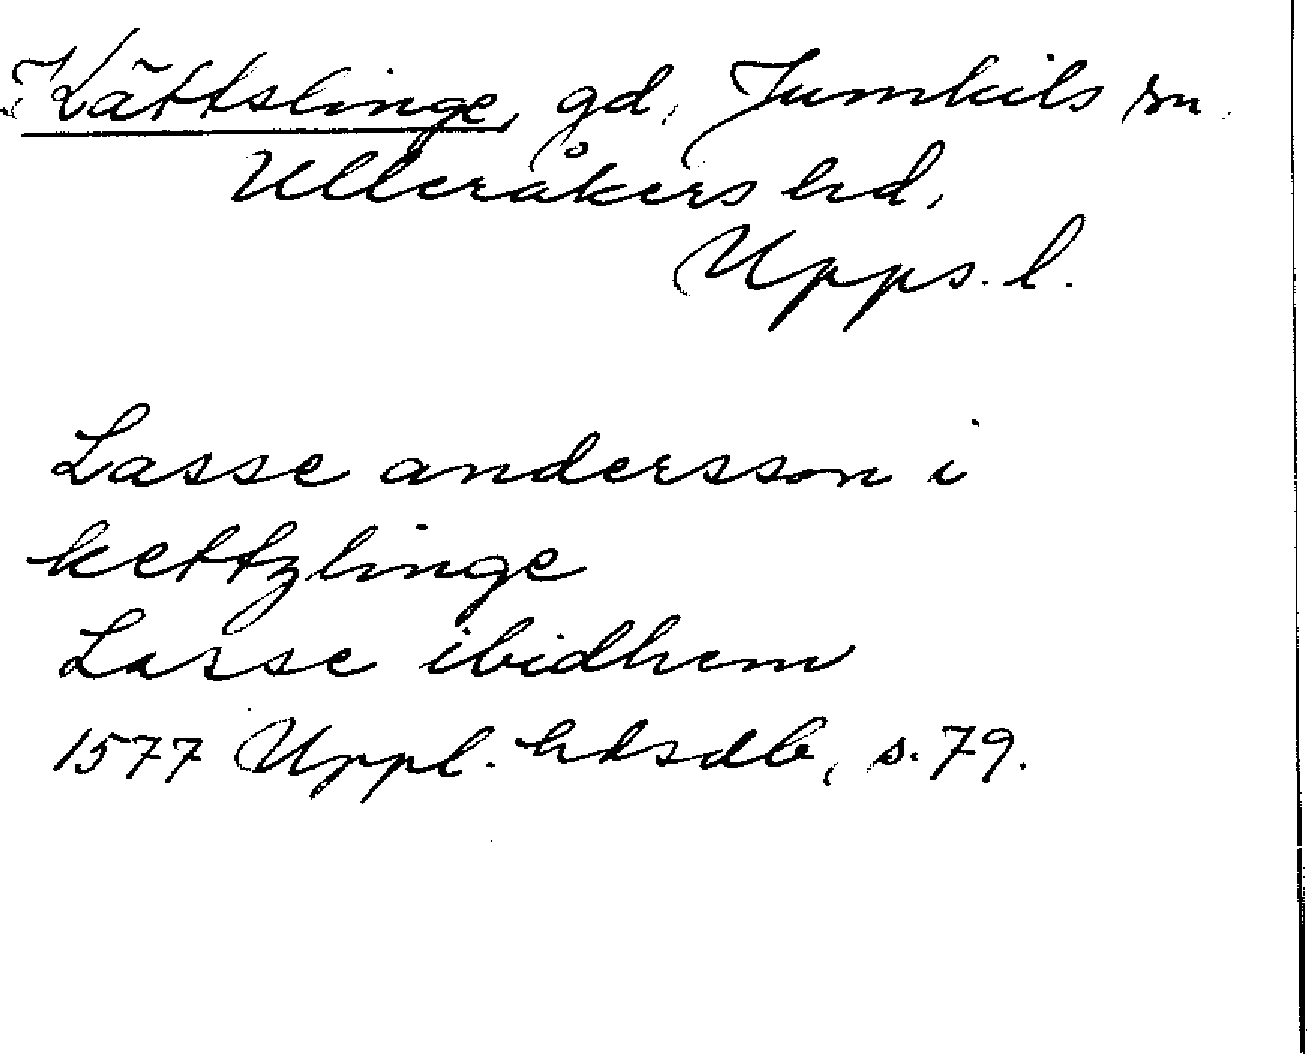 Kättslinge, gd, Jumkils sn.
Ulleråkers hd,
Upps. l.
Lasse andersson i
kettzlinge
Lasse ibidhem
1577 Uppl. hdsdb, s. 79.